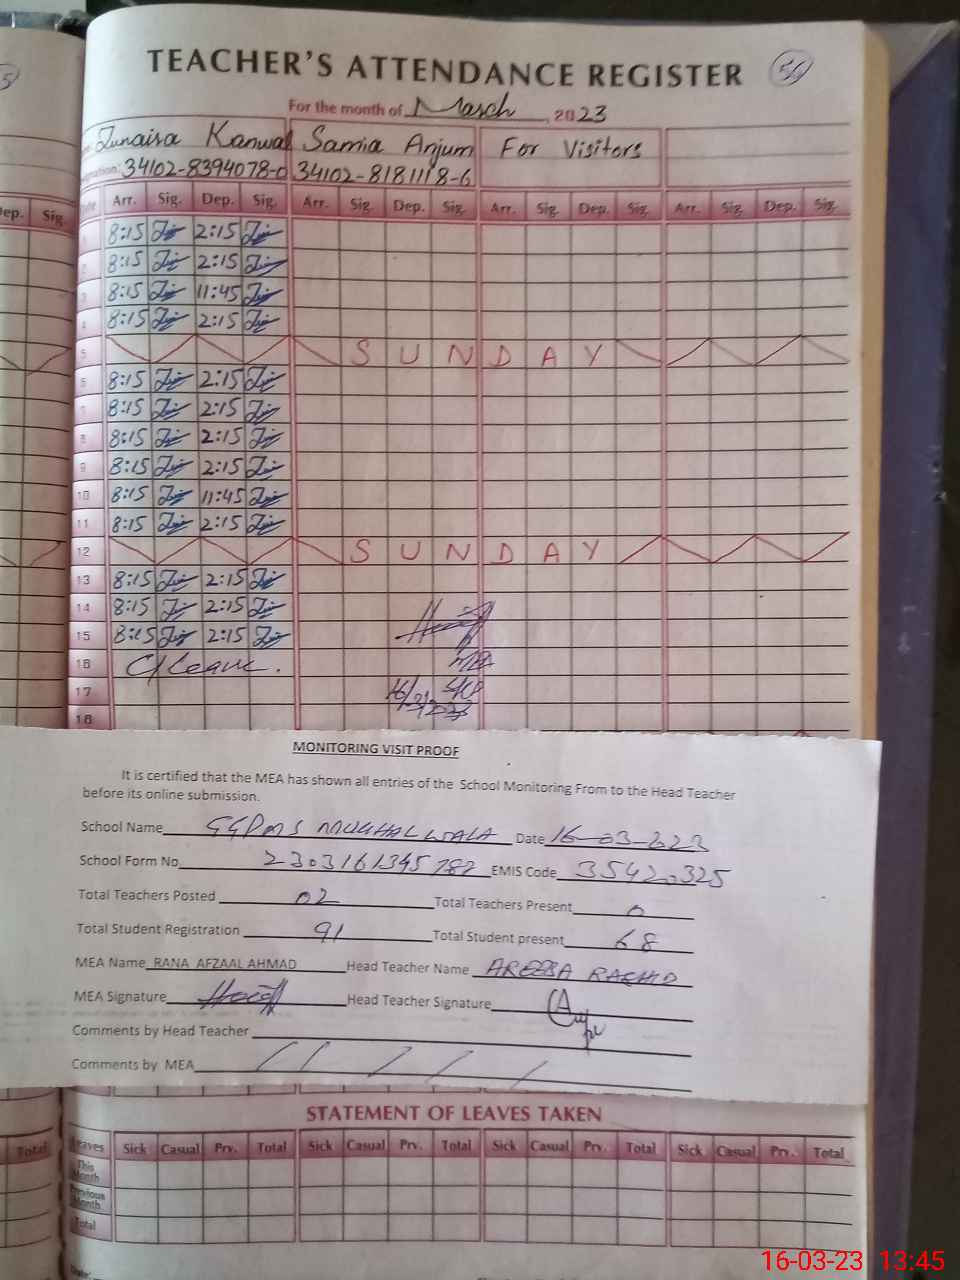 TEACHER'S ATTENDANCE REGISTER 56
For the month of March, 2023
Zunaisa Kanwal Samia Anjum For Visitors
34102-8394078-0 34102-8181118-6
Arr. Sig. Dep. Sig. Arr. Sig. Dep. Sig. Arr. Sig. Dep. Sig. Arr. Sig. Dep. Sig.
1 8:15 2:15
2 8:15 2:15
3 8:15 11:45
4 8:15 2:15
5 SUNDAY
6 8:15 2:15
7 8:15 2:15
8 8:15 2:15
9 8:15 2:15
10 8:15 11:45
11 8:15 2:15
12 SUNDAY
13 8:15 2:15
14 8:15 2:15
15 8:15 2:15
16 C/Leave.
17 16/3/2023
18
MONITORING VISIT PROOF
It is certified that the MEA has shown all entries of the School Monitoring From to the Head Teacher
before its online submission.
School Name GGPMS MUGHAL WALA Date 16-03-223
School Form No 2303161345782 EMIS Code 35420325
Total Teachers Posted 02 Total Teachers Present 0
Total Student Registration 91 Total Student present 68
MEA Name RANA AFZAAL AHMAD Head Teacher Name AREEBA RASHID
MEA Signature Head Teacher Signature
Comments by Head Teacher
Comments by MEA
STATEMENT OF LEAVES TAKEN
Total Leaves Sick Casual Prv. Total Sick Casual Prv. Total Sick Casual Prv. Total Sick Casual Prv. Total
This Month
Previous Month
Total
16-03-23 13:45